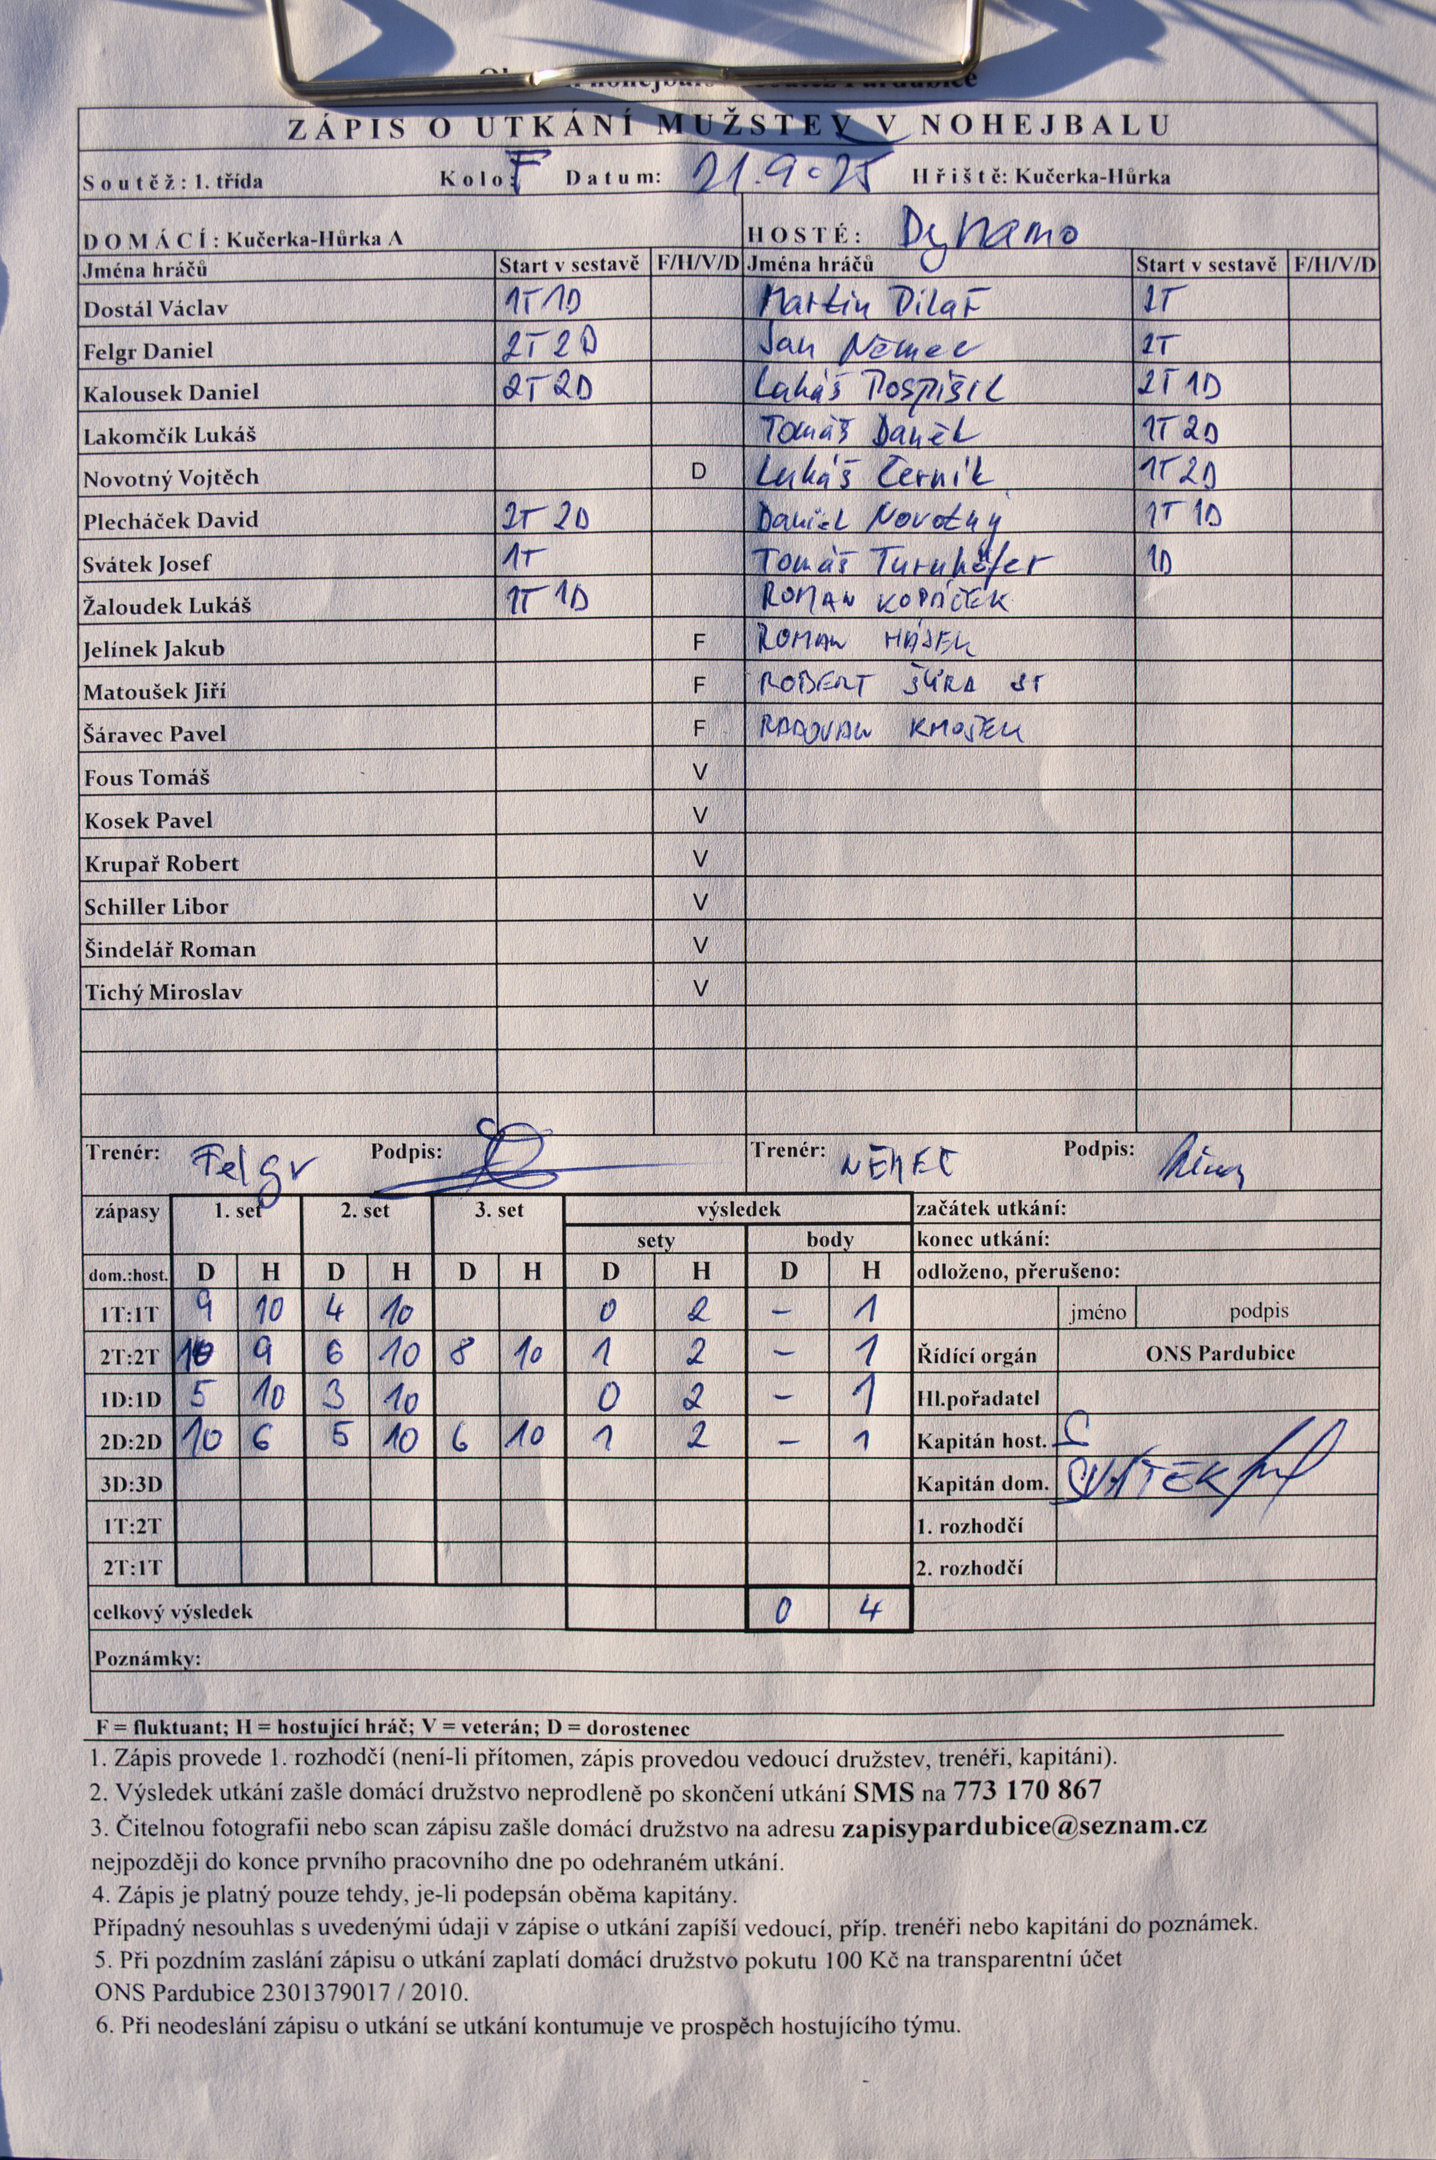 nohejbal Pardubice
ZÁPIS O UTKÁNÍ MUŽSTEV V NOHEJBALU
Soutěž: 1. třída Kolo: F Datum: 21.9.25 Hřiště: Kučerka-Hůrka
DOMÁCÍ: Kučerka-Hůrka A HOSTÉ: Dynamo
Jména hráčů Start v sestavě F/H/V/D Jména hráčů Start v sestavě F/H/V/D
Dostál Václav 1T 1D Martin Pilař 2T
Felgr Daniel 2T 2D Jan Němec 2T
Kalousek Daniel 2T 2D Lukáš Pospíšil 2T 1D
Lakomčík Lukáš Tomáš Daněk 1T 2D
Novotný Vojtěch D Lukáš Černík 1T 2D
Plecháček David 2T 2D Daniel Novotný 1T 1D
Svátek Josef 1T Tomáš Turnhöfer 1D
Žaloudek Lukáš 1T 1D ROMAN KOPÁČEK
Jelínek Jakub F ROMAN HÁJEK
Matoušek Jiří F ROBERT ŠŮRA ST
Šáravec Pavel F RADOVAN KMOŠEK
Fous Tomáš V
Kosek Pavel V
Krupař Robert V
Schiller Libor V
Šindelář Roman V
Tichý Miroslav V
Trenér: Felgr Podpis: Trenér: NĚMEC Podpis:
zápasy 1. set 2. set 3. set výsledek začátek utkání:
sety body konec utkání:
dom.:host. D H D H D H D H D H odloženo, přerušeno:
1T:1T 9 10 4 10 0 2 - 1 jméno podpis
2T:2T 10 9 6 10 8 10 1 2 - 1 Řídící orgán ONS Pardubice
1D:1D 5 10 3 10 0 2 - 1 Hl.pořadatel
2D:2D 10 6 5 10 6 10 1 2 - 1 Kapitán host.
3D:3D Kapitán dom. SVÁTEK
1T:2T 1. rozhodčí
2T:1T 2. rozhodčí
celkový výsledek 0 4
Poznámky:
F = fluktuant; H = hostující hráč; V = veterán; D = dorostenec
1. Zápis provede 1. rozhodčí (není-li přítomen, zápis provedou vedoucí družstev, trenéři, kapitáni).
2. Výsledek utkání zašle domácí družstvo neprodleně po skončení utkání SMS na 773 170 867
3. Čitelnou fotografii nebo scan zápisu zašle domácí družstvo na adresu zapisypardubice@seznam.cz
nejpozději do konce prvního pracovního dne po odehraném utkání.
4. Zápis je platný pouze tehdy, je-li podepsán oběma kapitány.
Případný nesouhlas s uvedenými údaji v zápise o utkání zapíší vedoucí, příp. trenéři nebo kapitáni do poznámek.
5. Při pozdním zaslání zápisu o utkání zaplatí domácí družstvo pokutu 100 Kč na transparentní účet
ONS Pardubice 2301379017 / 2010.
6. Při neodeslání zápisu o utkání se utkání kontumuje ve prospěch hostujícího týmu.